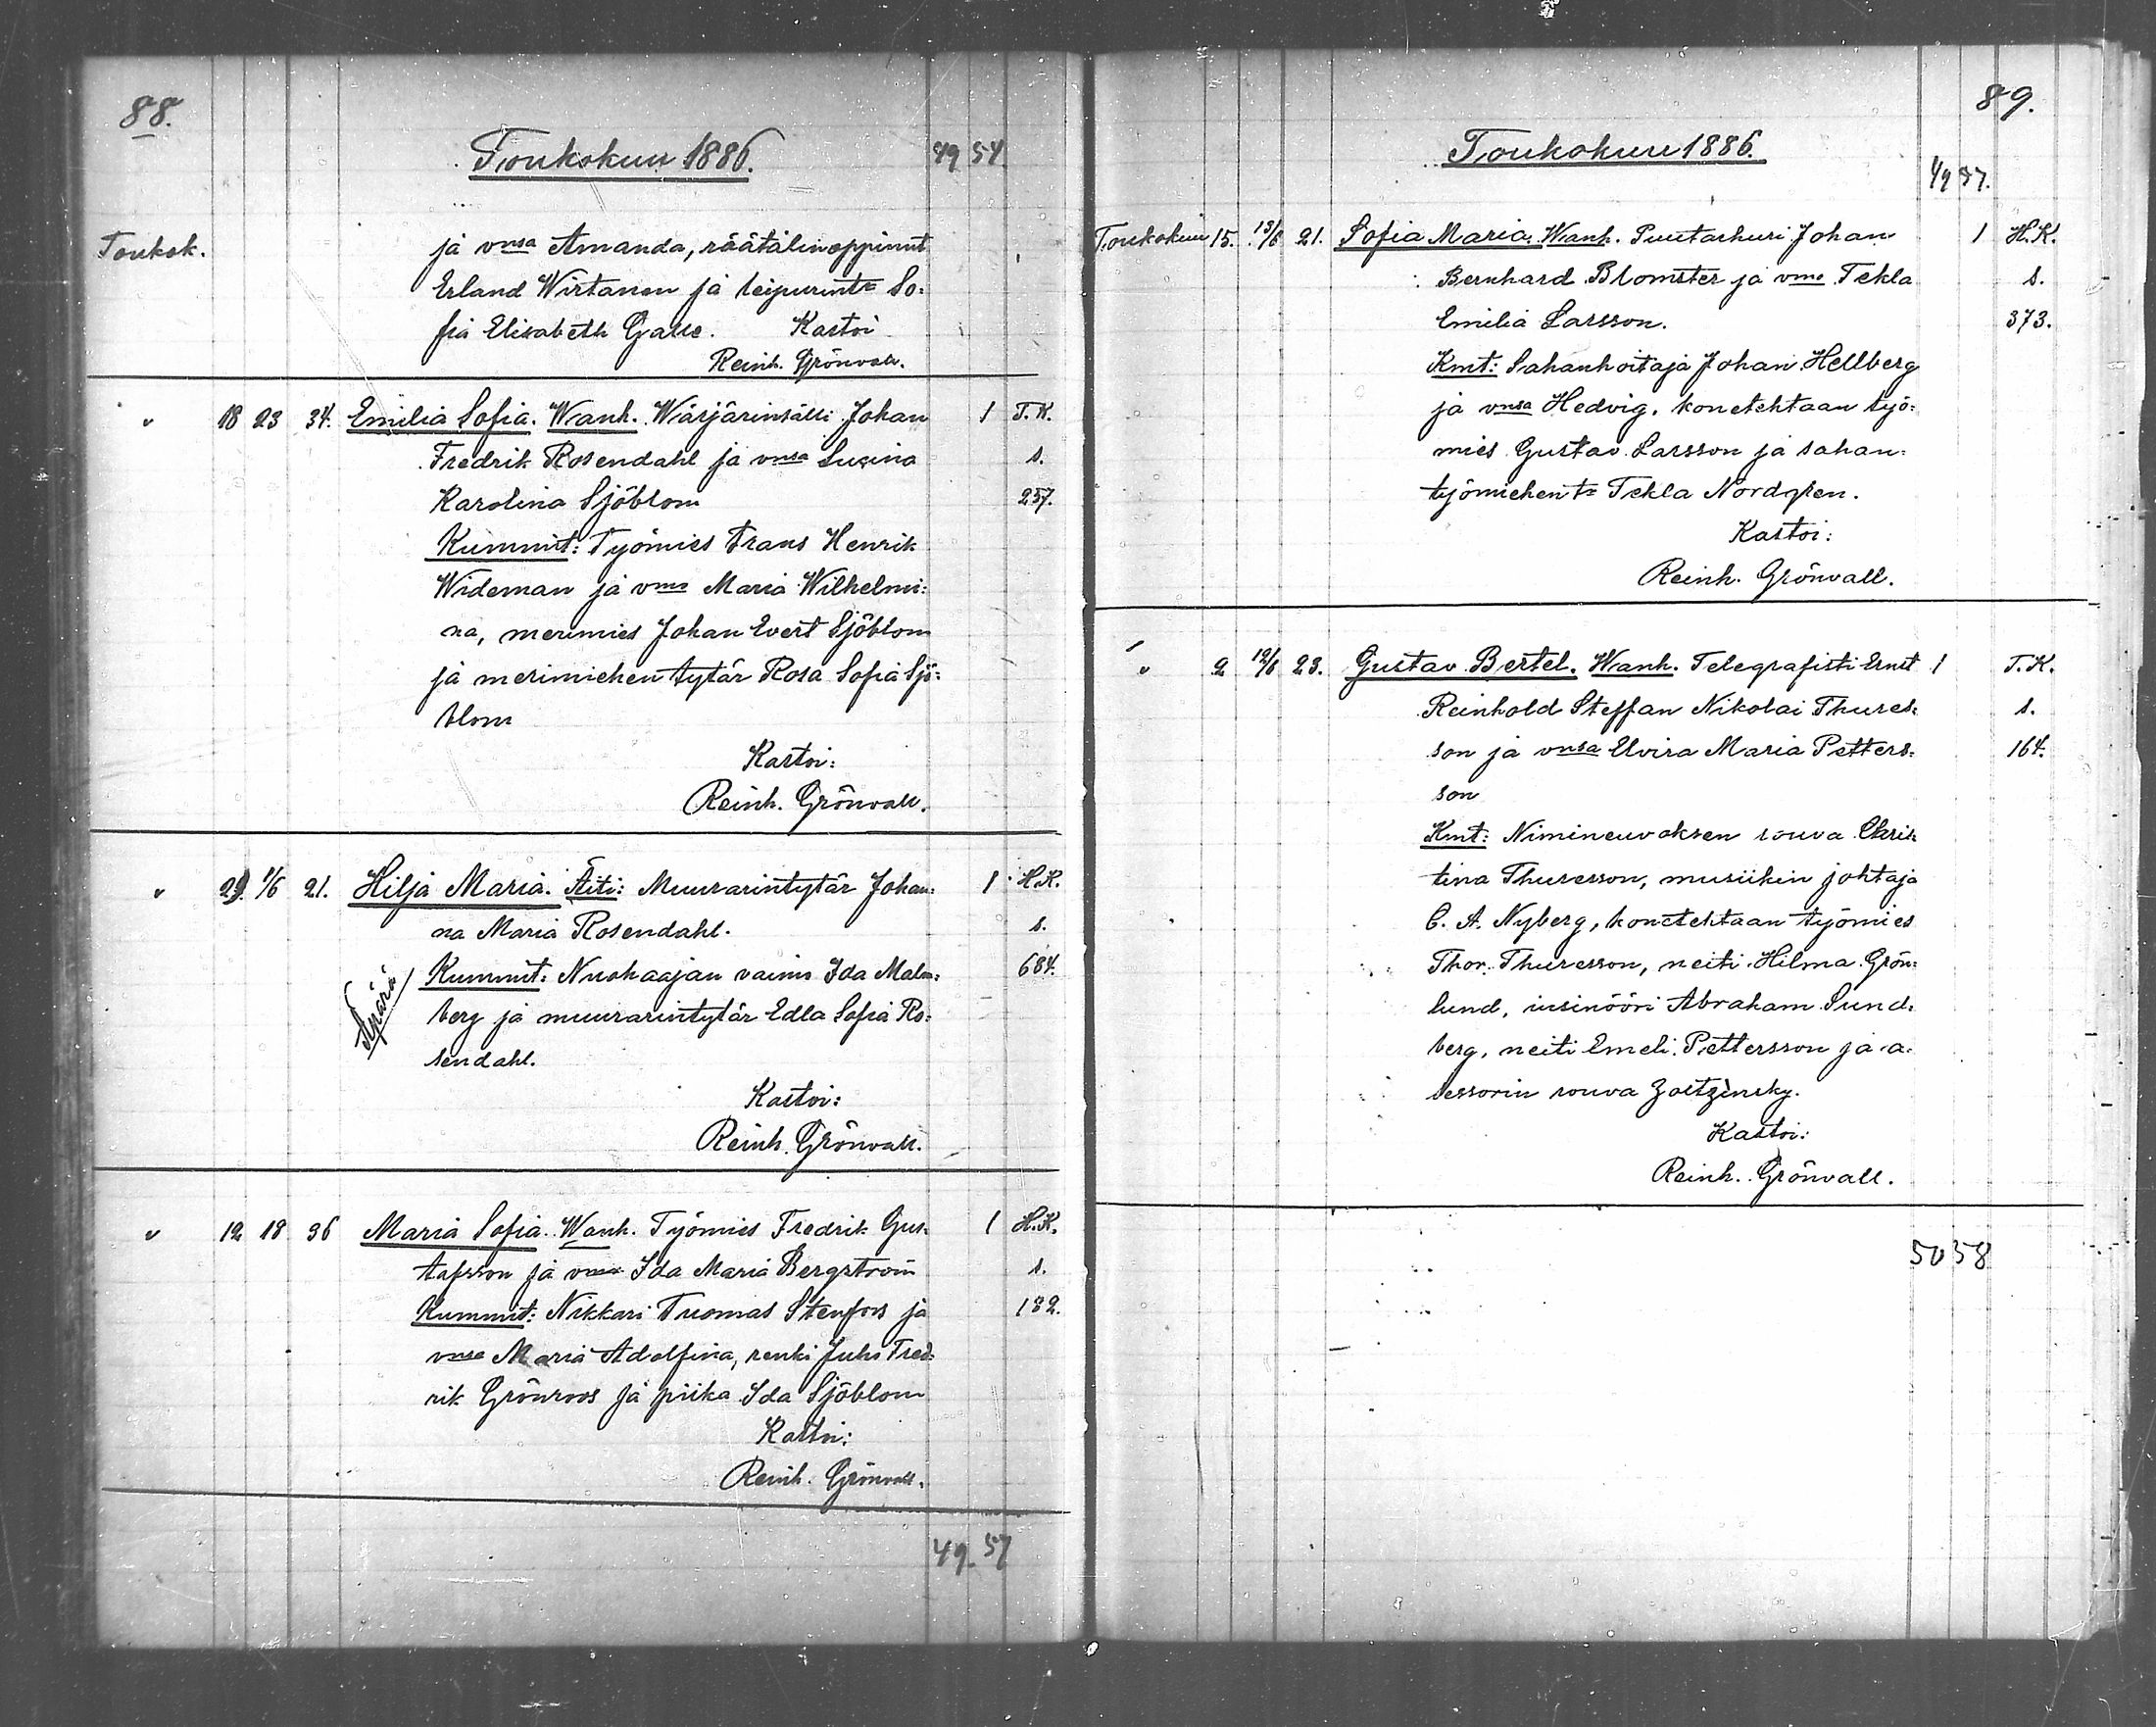 88.
Toukokuu 1886. 49 54
Toukok. ja vmsa Amanda, räätälinoppinut
Erland Wirtanen ja leipurint= So=
fia Elisabeth Kastoi
Reinh. Grönvall.
" 18 23 34. Emilia Sofia. Wanh. Wärjärinsälli Johan 1 T.K.
Fredrik Rosendahl ja vmsa Lusina s.
Karolina Sjöblom 257.
Kummit: Työmies Frans Henrik
Wideman ja vmsa Maria Wilhelmi=
na, merimies Johan Evert Sjöblom
ja merimiehen tytär Rosa Sofia Sjö=
blom
Kastoi:
Reinh. Grönvall.
" 29. 1/6 21. Hilja Maria. Äiti: Muurarintytär Johan= 1 H.K.
na Maria Rosendahl. s.
Äpärä Kummit: Nuohaajan vaimo Ida Malm= 684.
berg ja muurarintytär Edla Sofia Ro=
sendahl.
Kastoi:
Reinh. Grönvall.
" 12 18 36 Maria Sofia. Wanh. Työmies Fredrik Gus= 1 H.K.
tafsson ja vmsa Ida Maria Bergström s.
Kummit: Nikkari Tuomas Stenfors ja 132.
vmsa Maria Adolfina, renki Juho Fred=
rik Grönroos ja piika Ida Sjöblom
Kastoi:
Reinh. Grönvall.
49. 57
89.
Toukokuu 1886.
49 57.
Toukokuu 15. 13/6 21. Sofia Maria. Wanh. Puutarhuri Johan 1 H.K.
Bernhard Blomster ja vmsa Tekla s.
Emilia Larsson. 373.
Kmt: Sahanhoitaja Johan Hellberg
ja vmsa Hedvig, konetehtaan työ=
mies Gustav Larsson ja sahan=
työmiehen t= Tekla Nordgren.
Kastoi:
Reinh. Grönvall.
" 2 12/6 23. Gustav Bertel. Wanh. Telegrafisti Ernst 1 T.K.
Reinhold Steffan Nikolai Thures= s.
son ja vmsa Elvira Maria Petters= 164.
son
Kmt: Nimineuvoksen rouva Chris=
tina Thuresson, musiikin johtaja
C. A. Nyberg, konetehtaan työmies
Thor. Thuresson, neiti Hilma Grön=
lund, insinööri Abraham Sund=
berg, neiti Emeli Pettersson ja a=
sessorin rouva
Kastoi:
Reinh. Grönvall.
50 58